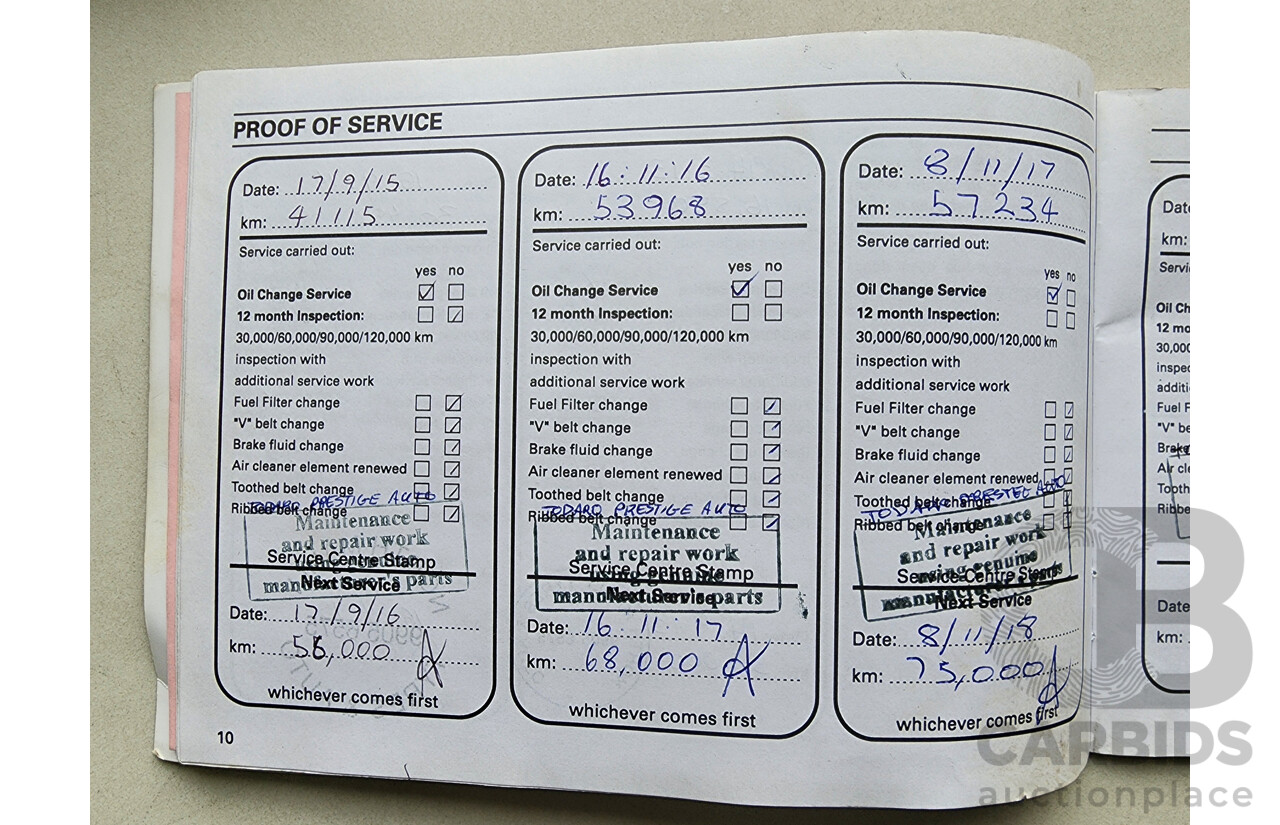 PROOF OF SERVICE
Date: 17/9/15
km: 41115
Service carried out:
yes no
Oil Change Service
12 month Inspection:
30,000/60,000/90,000/120,000 km
inspection with
additional service work
Fuel Filter change
"V" belt change
Brake fluid change
Air cleaner element renewed
Toothed belt change
TODARO PRESTIGE AUTO
Ribbed belt change
Maintenance
and repair work
Service Centre Stamp
manufacturer's parts
Next Service
Date: 17/9/16
km: 56,000
whichever comes first
10
Date: 16:11:16
km: 53968
Service carried out:
yes no
Oil Change Service
12 month Inspection:
30,000/60,000/90,000/120,000 km
inspection with
additional service work
Fuel Filter change
"V" belt change
Brake fluid change
Air cleaner element renewed
Toothed belt change
TODARO PRESTIGE AUTO
Ribbed belt change
Maintenance
and repair work
using genuine
Service Centre Stamp
manufacturer's parts
Next Service
Date: 16:11:17
km: 68,000
whichever comes first
Date: 8/11/17
km: 57234
Service carried out:
yes no
Oil Change Service
12 month Inspection:
30,000/60,000/90,000/120,000 km
inspection with
additional service work
Fuel Filter change
"V" belt change
Brake fluid change
Air cleaner element renewed
Toothed belt change
TODARO PRESTEE AUTO
Ribbed belt change
Maintenance
and repair work
using genuine
Service Centre Stamp
manufacturer's parts
Next Service
Date: 8/11/18
km: 75,000
whichever comes first
Dat
km:
Servi
Oil Ch
12 mo
30,00
inspec
additi
Fuel F
"V" be
Brake
Air cle
Tooth
Ribbe
Date
km:
B
CARBIDS
auctionplace